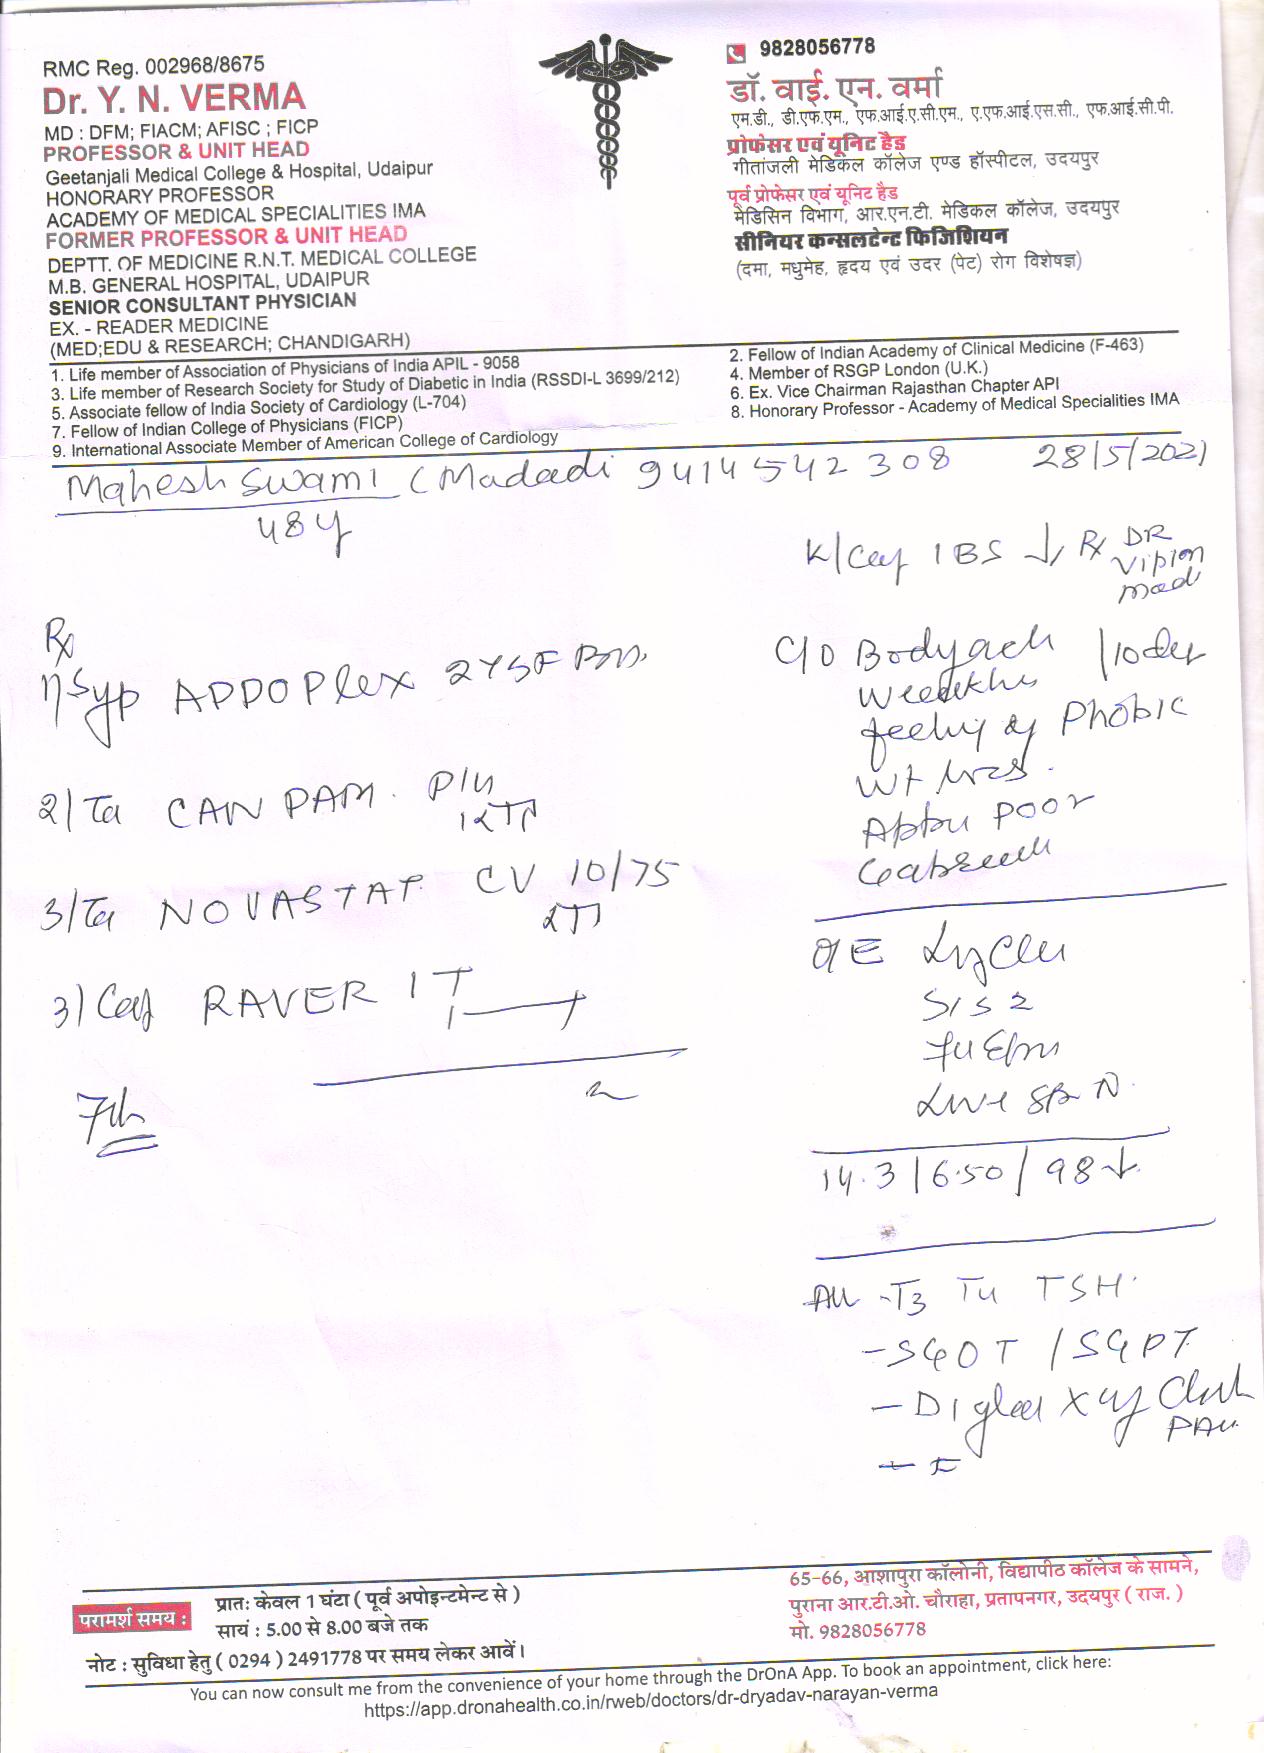 RMC Reg. 002968/8675
Dr. Y. N. VERMA
MD : DFM; FIACM; AFISC ; FICP
PROFESSOR & UNIT HEAD
Geetanjali Medical College & Hospital, Udaipur
HONORARY PROFESSOR
ACADEMY OF MEDICAL SPECIALITIES IMA
FORMER PROFESSOR & UNIT HEAD
DEPTT. OF MEDICINE R.N.T. MEDICAL COLLEGE
M.B. GENERAL HOSPITAL, UDAIPUR
SENIOR CONSULTANT PHYSICIAN
EX. - READER MEDICINE
(MED;EDU & RESEARCH; CHANDIGARH)
9828056778
डॉ. वाई. एन. वर्मा
एम.डी., डी.एफ.एम., एफ.आई.ए.सी.एम., ए.एफ.आई.एस.सी., एफ.आई.सी.पी.
प्रोफेसर एवं यूनिट हैड
गीतांजली मेडिकल कॉलेज एण्ड हॉस्पीटल, उदयपुर
पूर्व प्रोफेसर एवं यूनिट हैड
मेडिसिन विभाग, आर.एन.टी. मेडिकल कॉलेज, उदयपुर
सीनियर कन्सलटेन्ट फिजिशियन
(दमा, मधुमेह, हृदय एवं उदर (पेट) रोग विशेषज्ञ)
1. Life member of Association of Physicians of India APIL - 9058
2. Fellow of Indian Academy of Clinical Medicine (F-463)
3. Life member of Research Society for Study of Diabetic in India (RSSDI-L 3699/212)
4. Member of RSGP London (U.K.)
5. Associate fellow of India Society of Cardiology (L-704)
6. Ex. Vice Chairman Rajasthan Chapter API
7. Fellow of Indian College of Physicians (FICP)
8. Honorary Professor - Academy of Medical Specialities IMA
9. International Associate Member of American College of Cardiology
Mahesh Swami (Madadi 9414542308 28/5/2021
48y
K/Caf IBS ↓ Rx DR
Rx
1) Syp ADDOPlex 2YSF
2/ Ta CANPAM.
3/ Ta NOVASTAT CV 10/75
3) Cap RAVER IT
7th
C/O Bodyach
feeling of Phobic
Wt
poor
O/E
S1S2
14.3/6.50/98↓
-T3 T4 TSH.
- SGOT / SGPT
- Digital X ray Chest
PAV
परामर्श समय :
प्रातः केवल 1 घंटा ( पूर्व अपोइन्टमेन्ट से )
सायं : 5.00 से 8.00 बजे तक
नोट : सुविधा हेतु ( 0294 ) 2491778 पर समय लेकर आवें।
65-66, आशापुरा कॉलोनी, विद्यापीठ कॉलेज के सामने,
पुराना आर.टी.ओ. चौराहा, प्रतापनगर, उदयपुर ( राज. )
मो. 9828056778
You can now consult me from the convenience of your home through the DrOnA App. To book an appointment, click here:
https://app.dronahealth.co.in/rweb/doctors/dr-dryadav-narayan-verma